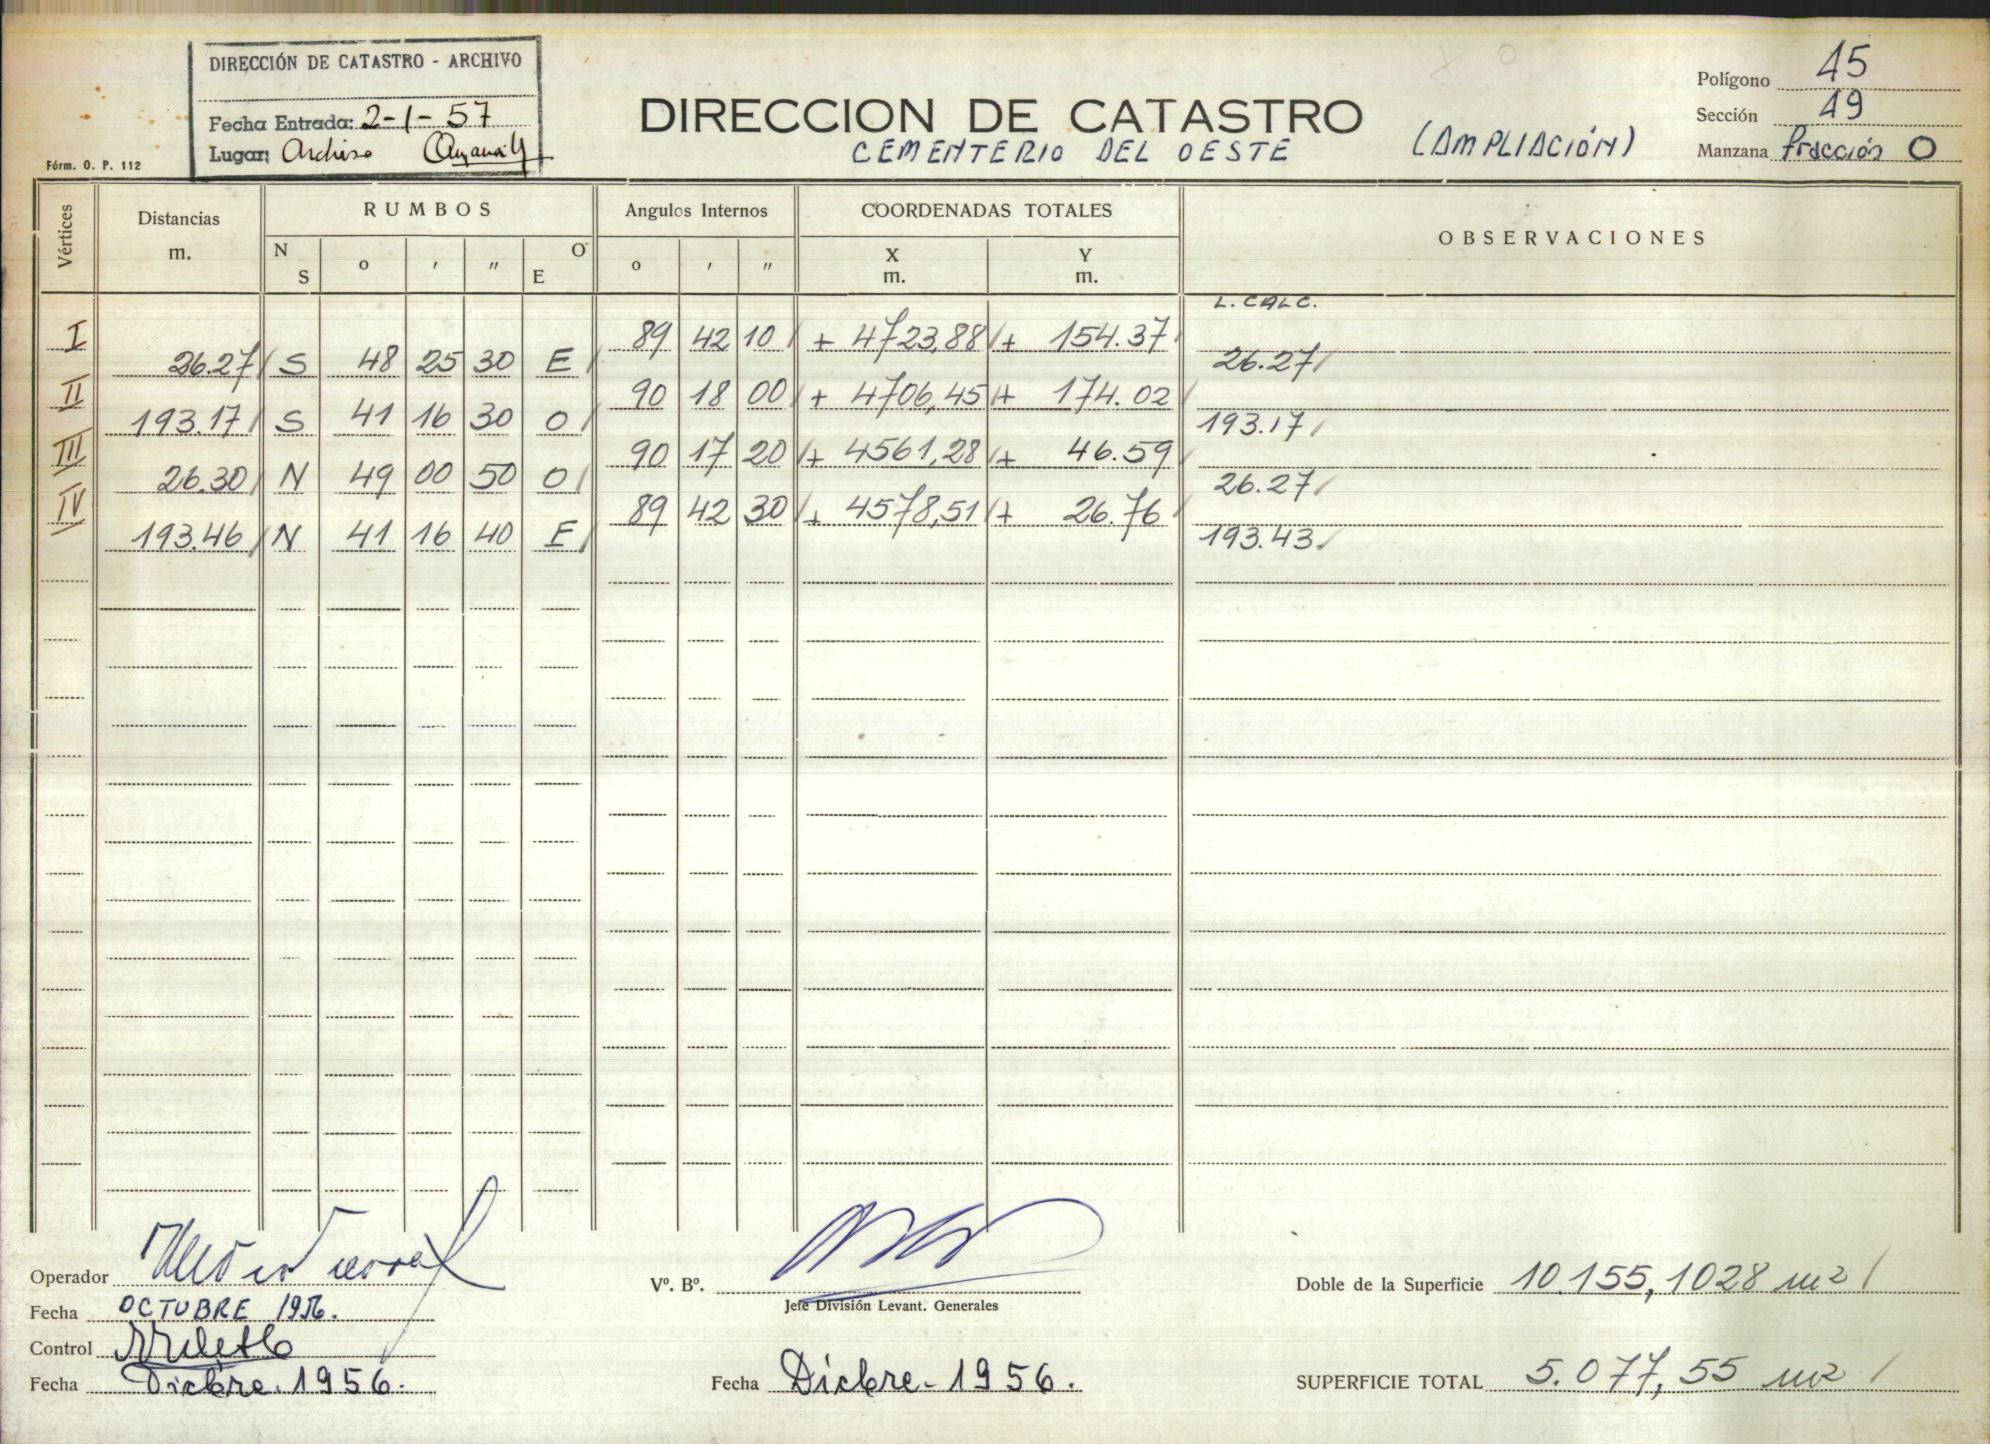 DIRECCIÓN DE CATASTRO - ARCHIVO
Fecha Entrada: 2-1-57
Lugar: Archivo
Fórm. O. P. 112
DIRECCION DE CATASTRO
CEMENTERIO DEL OESTE (AMPLIACIÓN)
Polígono 45
Sección 49
Manzana fracción O
Vértices
Distancias m.
RUMBOS
N S o ′ ″ O E
Angulos Internos
o ′ ″
COORDENADAS TOTALES
X m. Y m.
OBSERVACIONES
L. CALC.
I 89 42 10 + 4723,88 + 154.37
26.27 S 48 25 30 E 26.27
II 90 18 00 + 4706,45 + 174.02
193.17 S 41 16 30 O 193.17
III 90 17 20 + 4561,28 + 46.59
26.30 N 49 00 50 O 26.27
IV 89 42 30 + 4578,51 + 26.76
193.46 N 41 16 40 E 193.43
Operador
Fecha OCTUBRE 1956.
Control
Fecha Dicbre. 1956.
Vº. Bº.
Jefe División Levant. Generales
Fecha Dicbre - 1956.
Doble de la Superficie 10.155,1028 m2
SUPERFICIE TOTAL 5.077,55 m2